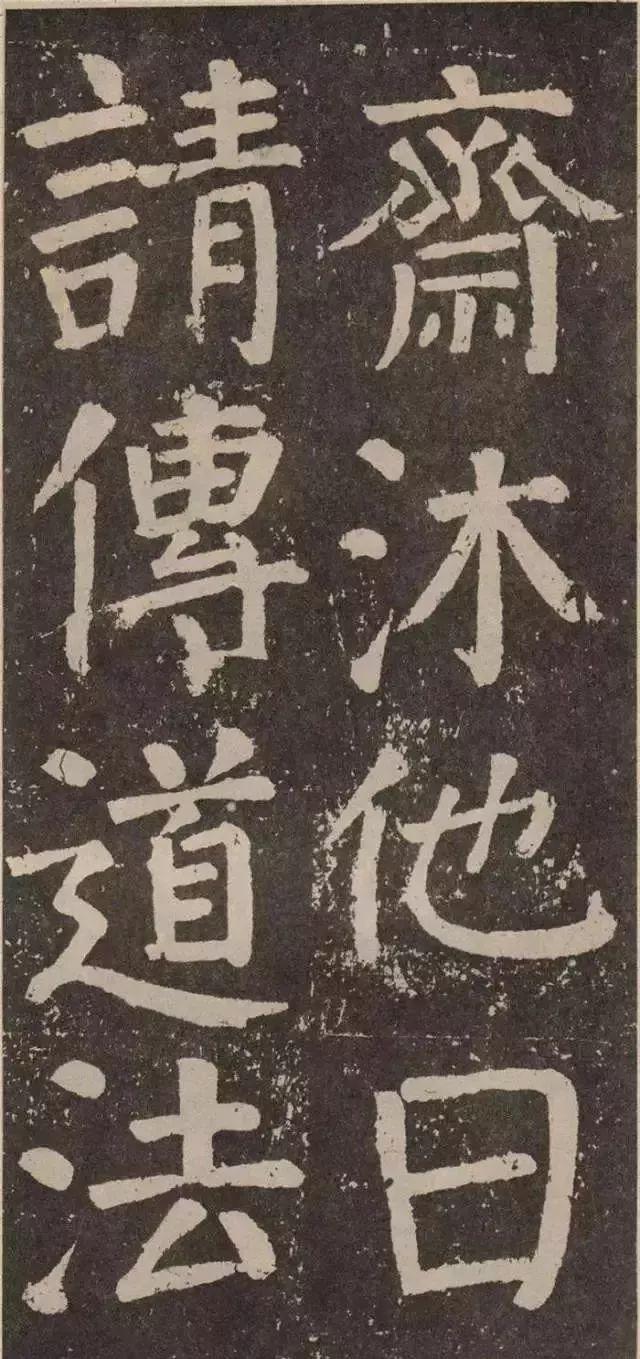 齋沐他日
請傳道法